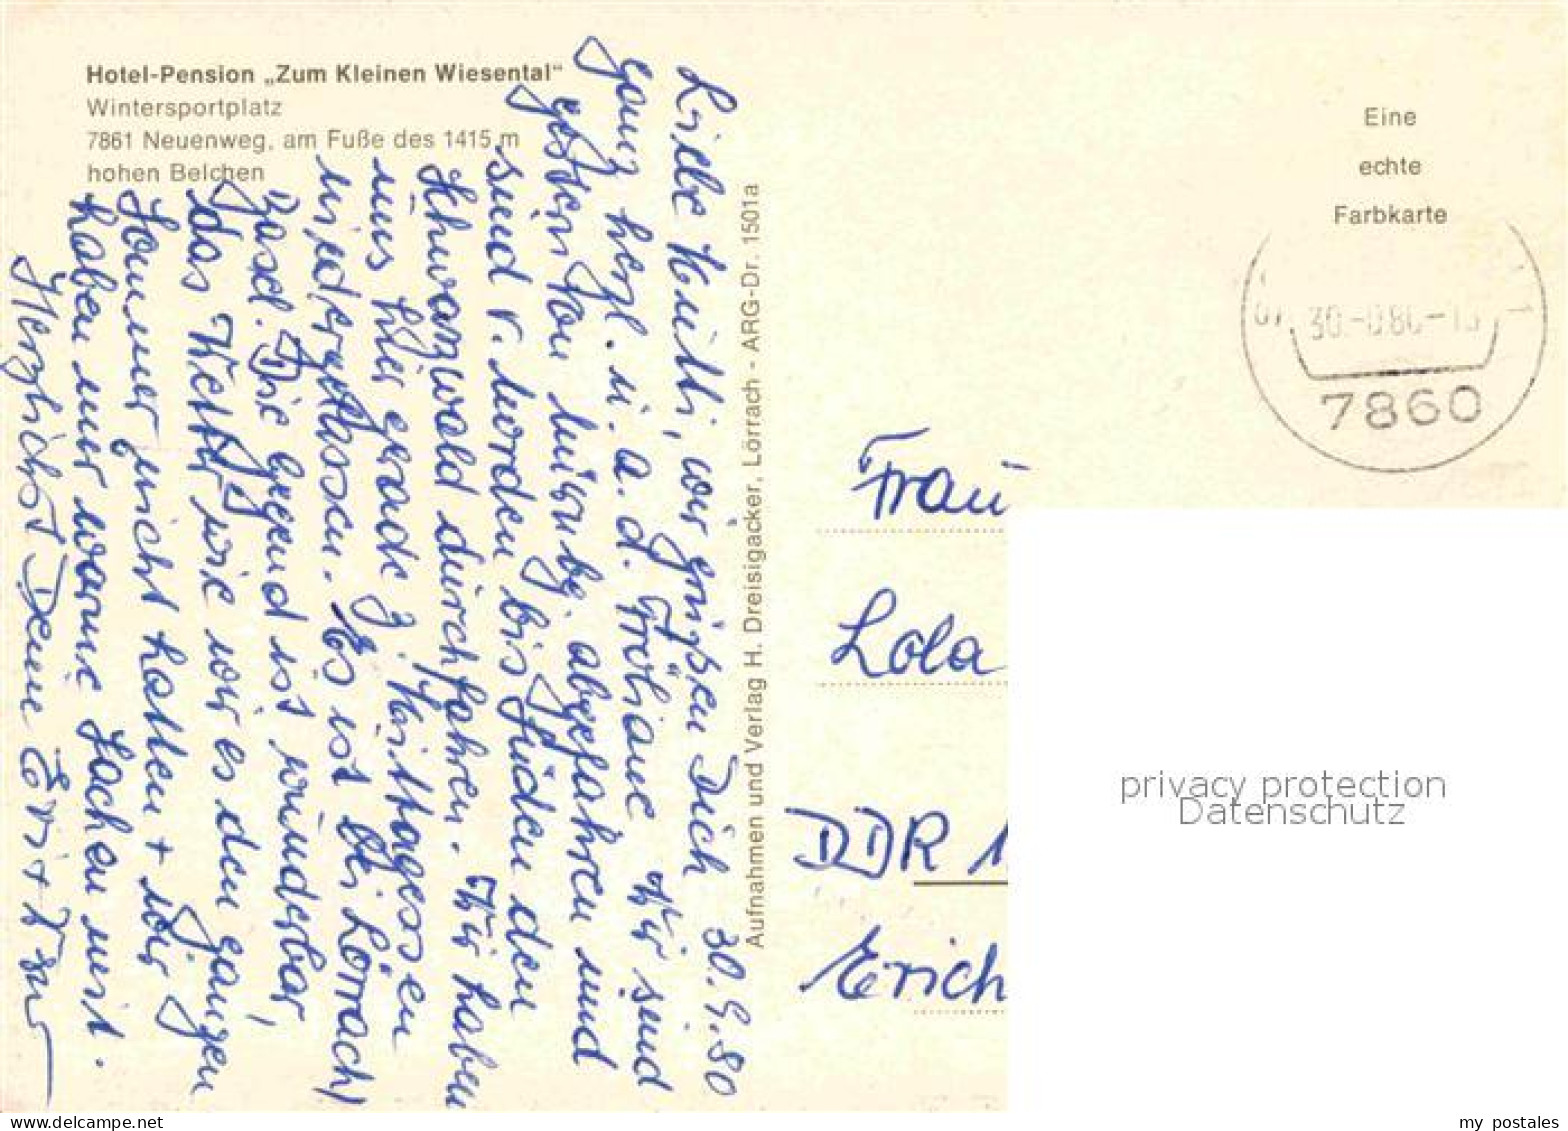 Hotel-Pension „Zum Kleinen Wiesental"
Wintersportplatz
7861 Neuenweg, am Fuße des 1415 m
hohen Belchen
30.9.80
Liebe Mutti, wir grüßen Dich
ganz herzl. u. a. d. Fröliane Wir sind
gestern von abgefahren und
sind v. Norden bis Süden den
Schwarzwald durchfahren. Wir haben
uns hier gerade z. Mittagessen
niedergelassen. Es ist bei Lörrach/
Basel. Die Gegend ist wunderbar,
das Wetter wie wir es den ganzen
Sommer nicht hatten + wir
haben nur warme Sachen mit.
Herzlichst Deine +
Aufnahmen und Verlag H. Dreisigacker, Lörrach - ARG-Dr. 1501a
Eine
echte
Farbkarte
7860
Frau
Lola
DDR 1
Erich
privacy protection
Datenschutz
my postales